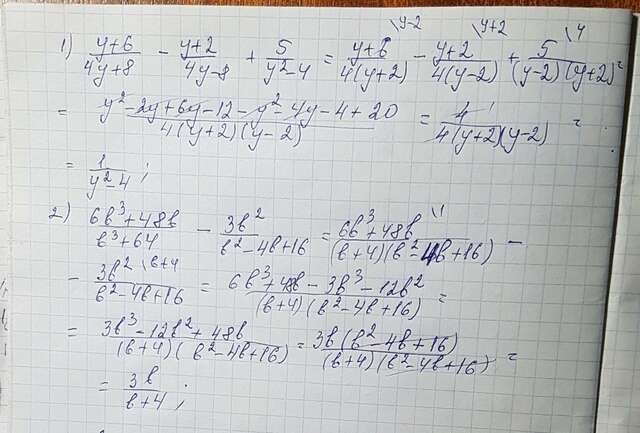 \y-2 \y+2 \4
1) (y+6)/(4y+8) - (y+2)/(4y-8) + 5/(y²-4) = (y+6)/(4(y+2)) - (y+2)/(4(y-2)) + 5/((y-2)(y+2)) =
= (y²-2y+6y-12-y²-4y-4+20)/(4(y+2)(y-2)) = 4/(4(y+2)(y-2)) =
= 1/(y²-4);
2) (6b³+48b)/(b³+64) - 3b²/(b²-4b+16) = (6b³+48b)/((b+4)(b²-4b+16)) \1 -
- 3b²/(b²-4b+16) \b+4 = (6b³+48b-3b³-12b²)/((b+4)(b²-4b+16)) =
= (3b³-12b²+48b)/((b+4)(b²-4b+16)) = 3b(b²-4b+16)/((b+4)(b²-4b+16)) =
= 3b/(b+4);